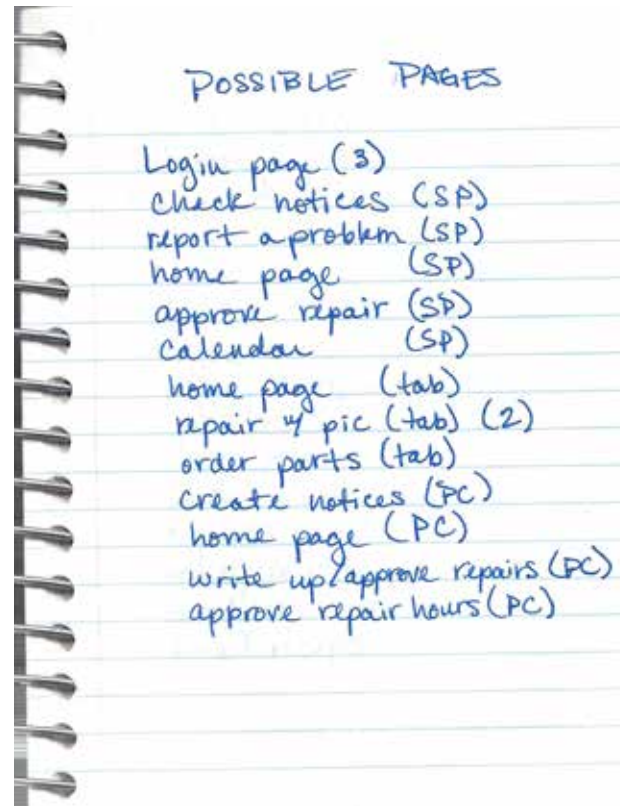 POSSIBLE PAGES
Login page (3)
check notices (SP)
report a problem (SP)
home page (SP)
approve repair (SP)
Calendar (SP)
home page (tab)
repair w/ pic (tab) (2)
order parts (tab)
create notices (PC)
home page (PC)
write up/approve repairs (PC)
approve repair hours (PC)